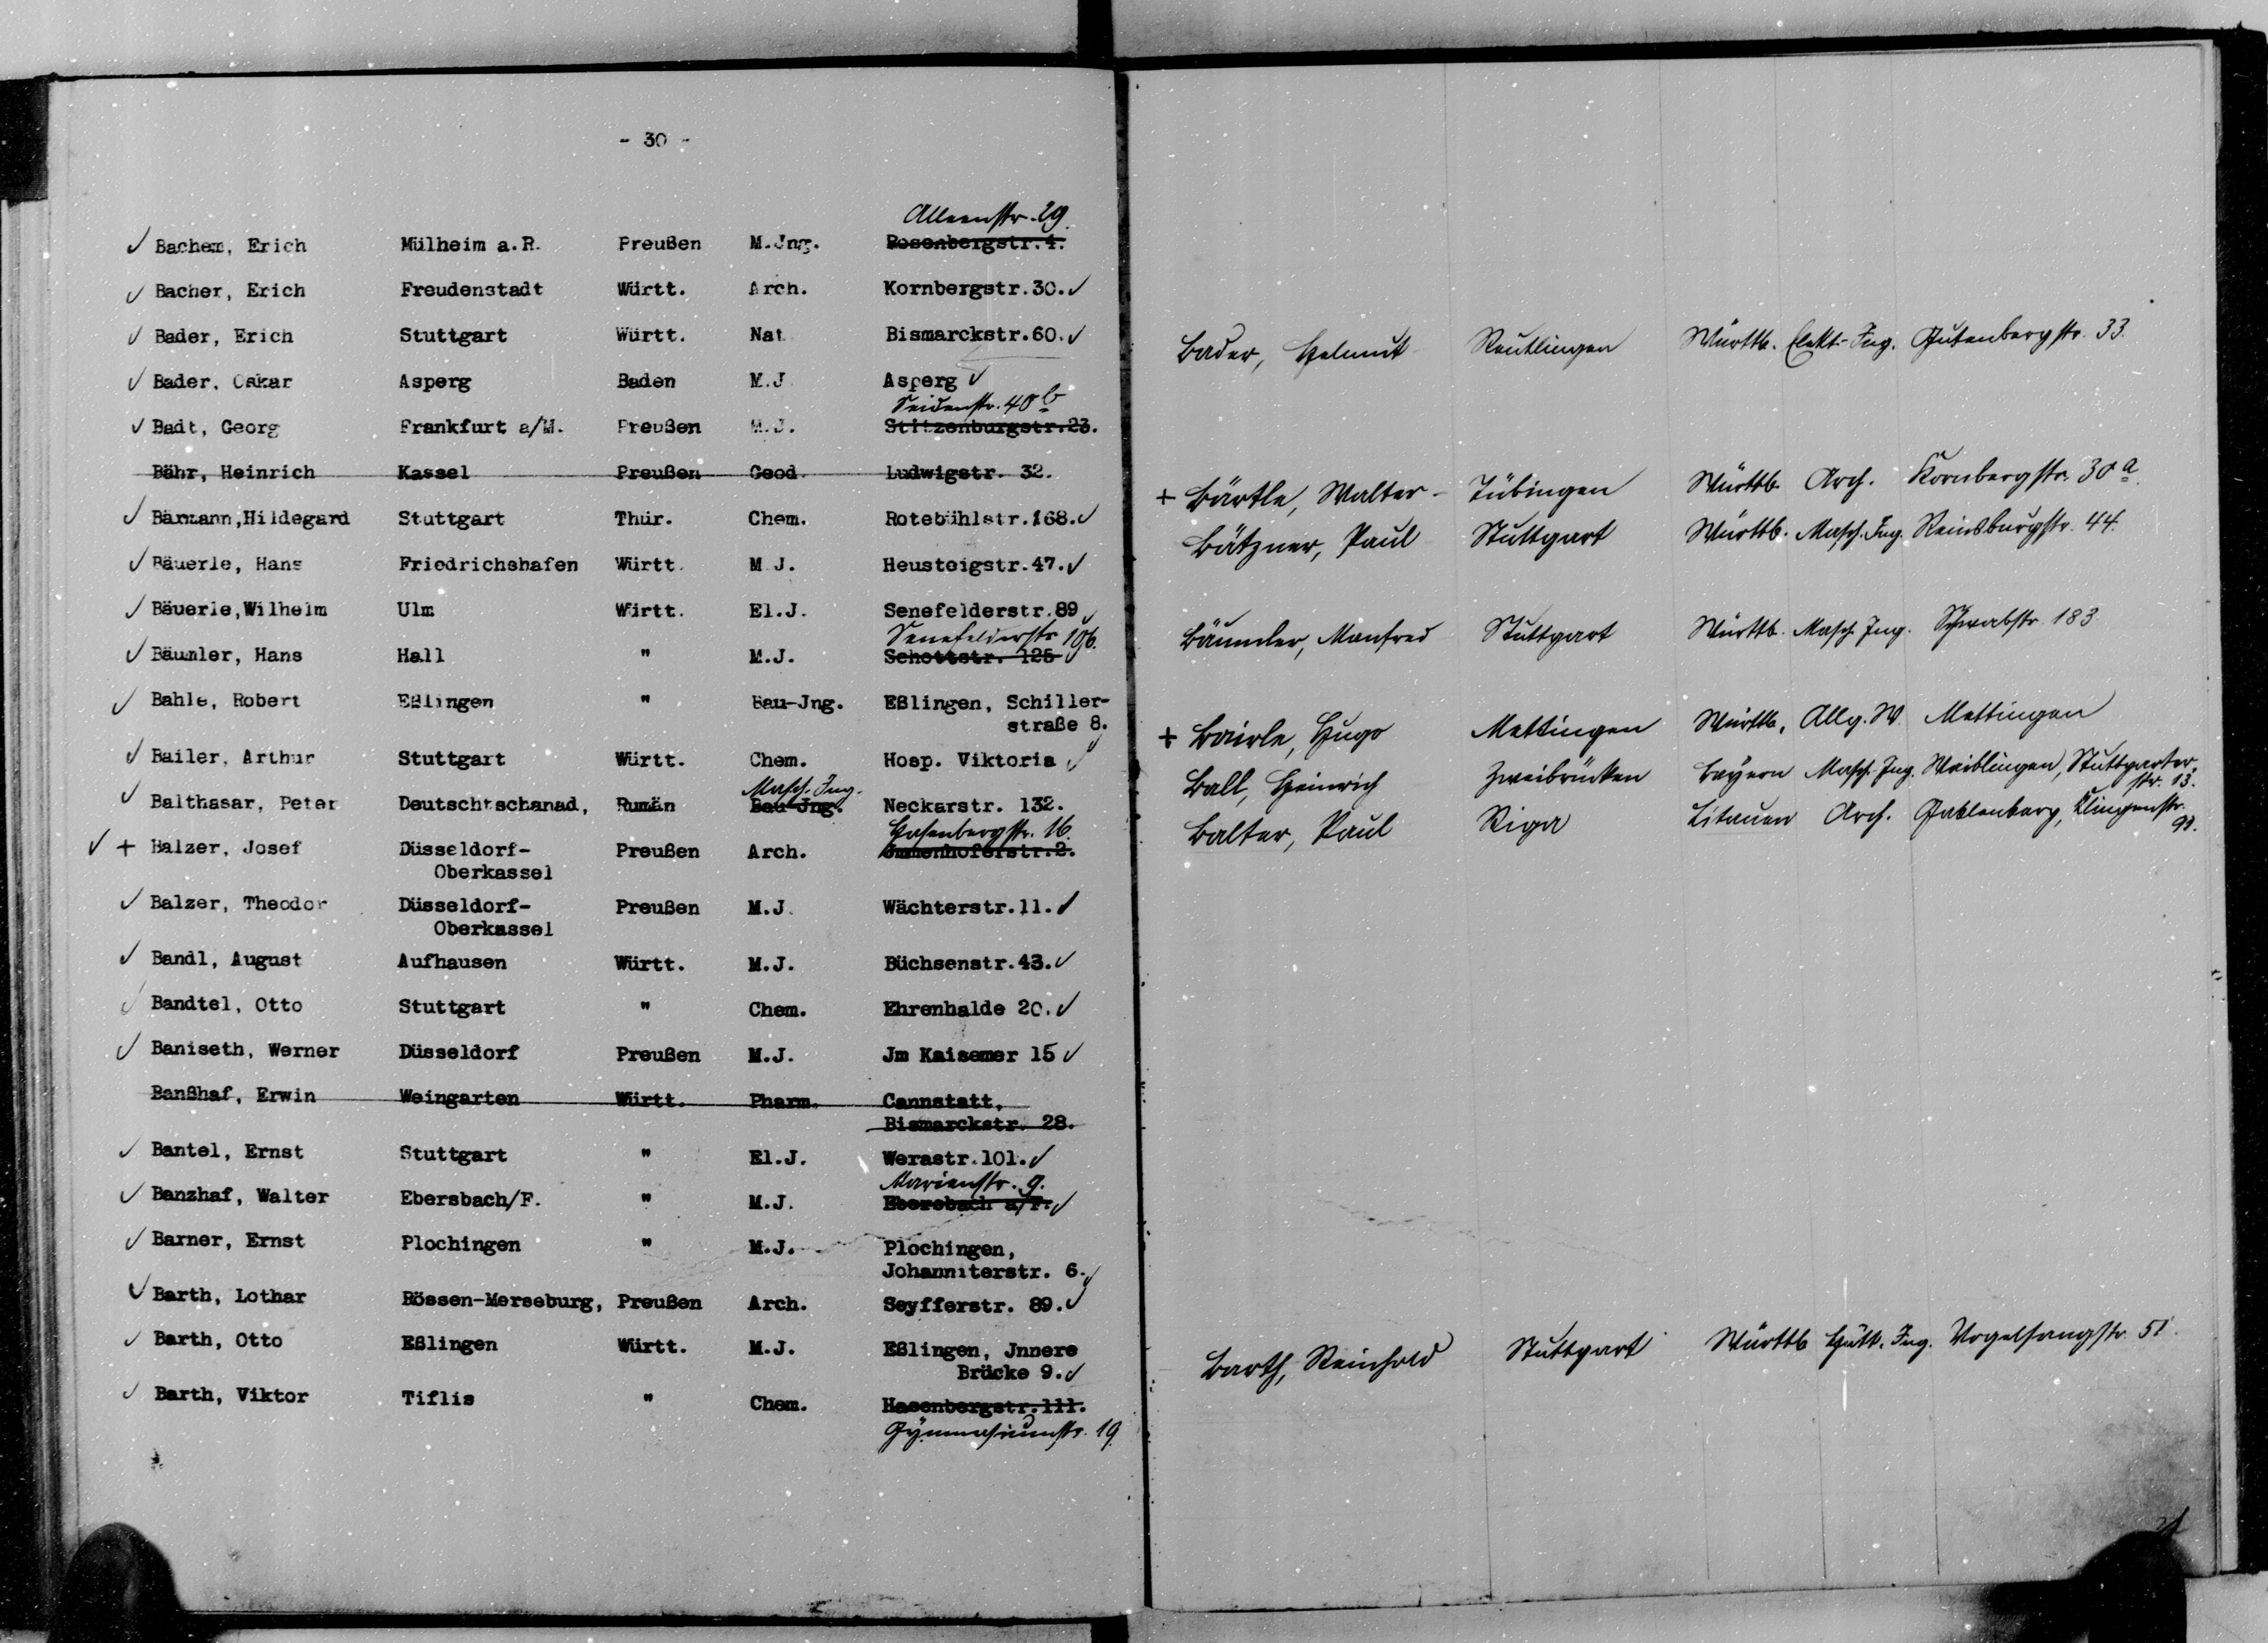 - 30 -
Alleenstr. 29.
Bachem, Erich Mülheim a.R. Preußen M.Jng. Rosenbergstr.4.
Bacher, Erich Freudenstadt Württ. Arch. Kornbergstr.30.
Bader, Erich Stuttgart Württ. Nat. Bismarckstr.60.
Bader, Oskar Asperg Baden M.J. Asperg
Seidenstr. 40 b
Badt, Georg Frankfurt a/M. Preußen M.J. Stitzenburgstr.23.
Bähr, Heinrich Kassel Preußen Geod. Ludwigstr. 32.
Bärmann,Hildegard Stuttgart Thür. Chem. Rotebühlstr.168.
Bäuerle, Hans Friedrichshafen Württ. M.J. Heusteigstr.47.
Bäuerle,Wilhelm Ulm Württ. El.J. Senefelderstr.89
Senefelderstr. 106.
Bäumler, Hans Hall " M.J. Schottstr. 125
Bahle, Robert Eßlingen " Bau-Jng. Eßlingen, Schiller-
straße 8.
Bailer, Arthur Stuttgart Württ. Chem. Hosp. Viktoria
Masch.-Ing.
Balthasar, Peter Deutschtschanad, Rumän Bau-Jng. Neckarstr. 132.
Hasenbergstr. 16.
+ Balzer, Josef Düsseldorf- Preußen Arch. Jmmenhoferstr.2.
Oberkassel
Balzer, Theodor Düsseldorf- Preußen M.J. Wächterstr.11.
Oberkassel
Bandl, August Aufhausen Württ. M.J. Büchsenstr.43.
Bandtel, Otto Stuttgart " Chem. Ehrenhalde 20.
Baniseth, Werner Düsseldorf Preußen M.J. Jm Kaisemer 15
Banßhaf, Erwin Weingarten Württ. Pharm. Cannstatt,
Bismarckstr. 28.
Bantel, Ernst Stuttgart " El.J. Werastr.101.
Marienstr. 9.
Banzhaf, Walter Ebersbach/F. " M.J. Ebersbach a/F.
Barner, Ernst Plochingen " M.J. Plochingen,
Johanniterstr. 6.
Barth, Lothar Bössen-Merseburg, Preußen Arch. Seyfferstr. 89.
Barth, Otto Eßlingen Württ. M.J. Eßlingen, Jnnere
Brücke 9.
Barth, Viktor Tiflis " Chem. Hasenbergstr.111.
Gymnasiumstr. 19.
Bader, Helmut Reutlingen Württb. Elekt.-Ing. Gutenbergstr. 33.
+ Bärtle, Walter - Tübingen Württb. Arch. Kornbergstr. 30 a.
Bätzner, Paul Stuttgart Württb. Masch. Ing. Reinsburgstr. 44.
Bäumler, Manfred Stuttgart Württb. Masch. Ing. Schwabstr. 183
+ Bairle, Hugo Mettingen Württb. Allg. W. Mettingen
Ball, Heinrich Zweibrücken Bayern Masch. Ing. Waiblingen, Stuttgarter-
str. 13.
Balter, Paul Riga Litauen Arch. Gablenberg, Klingenstr.
Barth, Reinhold Stuttgart Württb Hütt. Ing. Vogelsangstr. 51.